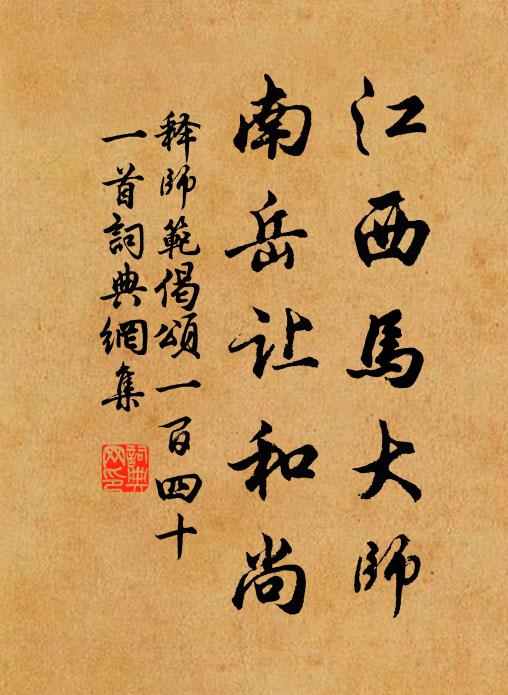 江西馬大師
南岳让和尚
释師範偈頌一百四十
一首詞典網集
詞典网印